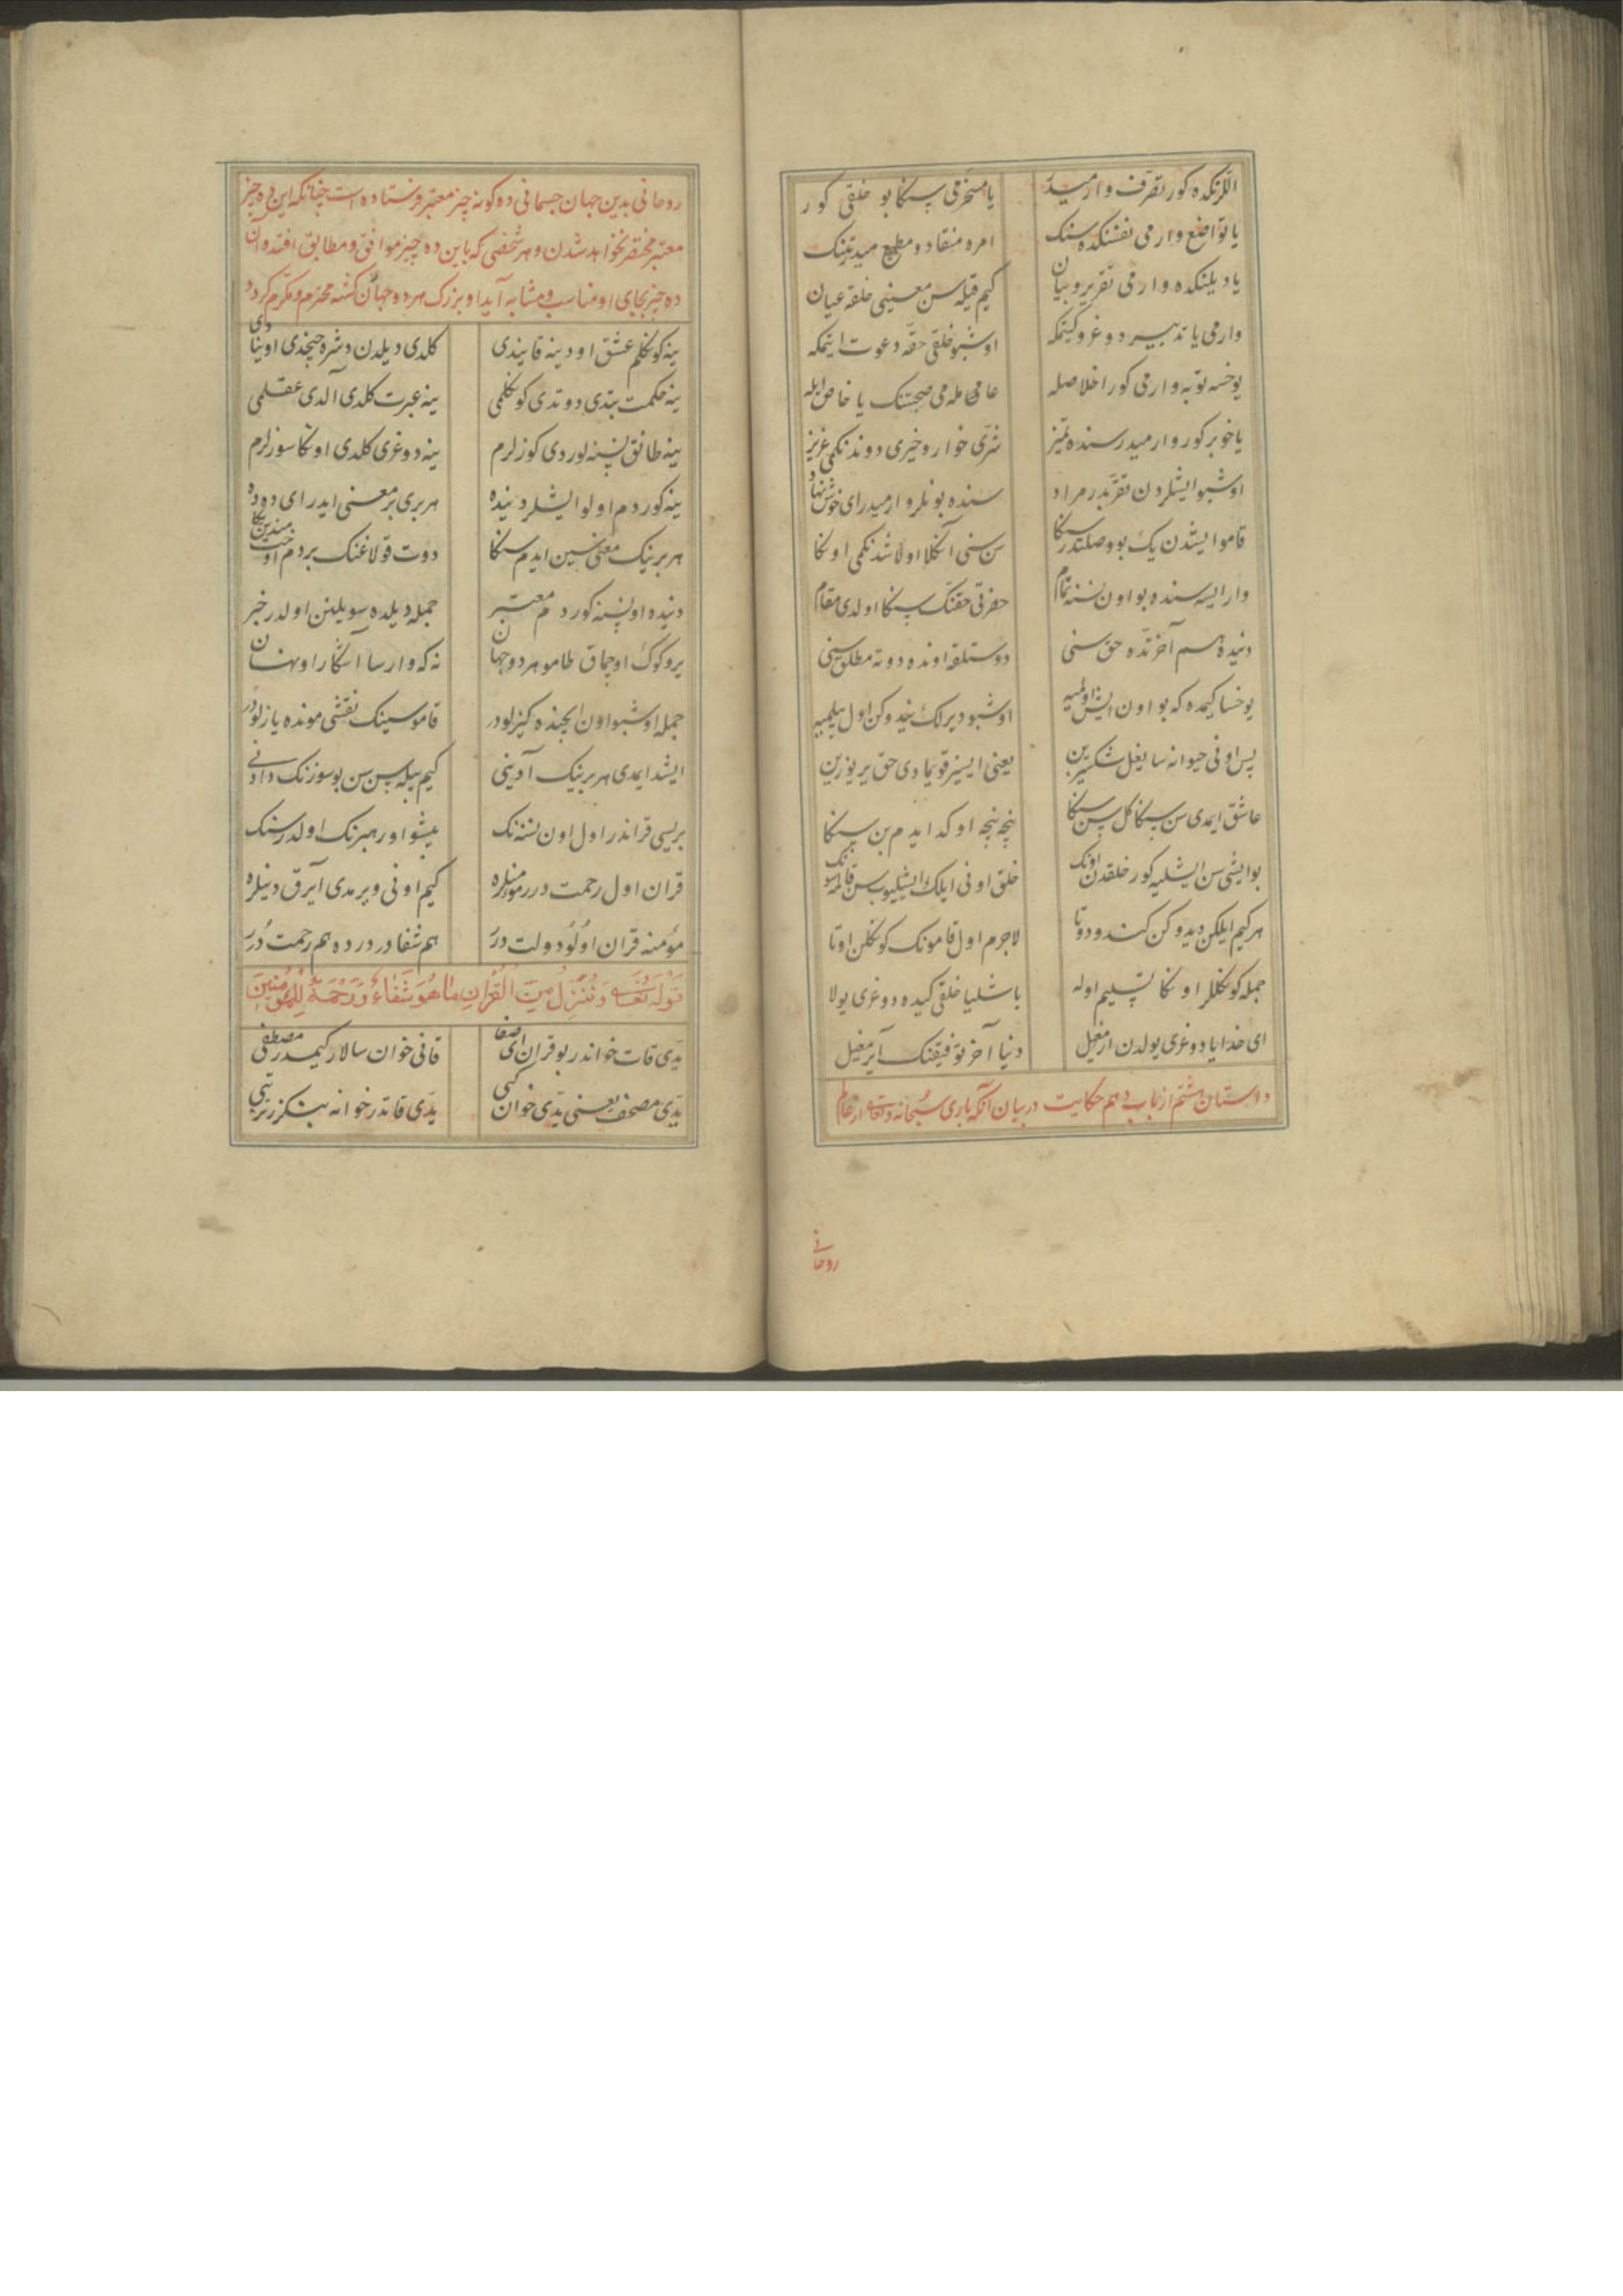 الّرنکده کور تصرّف وارمیدر یا مسخّرمی سنکا بو خلقی کور
یا تواضع وارمی نفسنکده سنک امره منقاد و مطیع میدر تنک
یا دیلنکده وارمی تقریر و بیان کیم قیله سن معنیی خلقه عیان
وارمی یا تدبیر دوغرو کیتمکه اوشبو خلقی حقّه دعوت ایتمکه
یوخسه توبه وارمی کور اخلاصله عامی‌مله‌می صحبتنک یا خاص ایله
یا خو بر کور وارمیدر سنده تمیز شرّی خوار و خیری دوندنکمی عزیز
اوشبو ایشلردن تقرّبدر مراد سنده بونلر وارمیدر ای خوش نهاد
قامو ایشدن یک بو وصلتدر سنکا سن سنی آنکلا اولاشدنکمی اونکا
وار ایسه سنده بو اون نسنه تمام حضرتی حقنک سنکا اولدی مقام
دنیده هم آخرتده حق سنی دوستلقه اونده دوته مطلق سنی
یوخسا کیمده که بو اون ایش اولمیه اوشبو دیرلک نیدوکن اول بیلمیه
پس اونی حیوانه سایغل شکسیزین یعنی ایسیز قویمادی حق یر یوزین
عاشق ایمدی سن سنکا کل سن سنکا نیجه نیجه اوکد ایدم بن سنکا
بو ایشی سن ایشلیه کور خلقدن اونک خلق اونی ایلک ایشلیوب سن قالمه سونک
هر کیم ایلکن دیدوکن کندو دوتا لاجرم اول قامونک کونکلن اوتا
جمله کونکللر اونکا تسلیم اوله باشلیا خلقی کیده دوغری یولا
ای خدایا دوغری یولدن ازمغیل دنیا آخر توفیقنک آیرمغیل
داستان هشتم از باب دهم حکایت در بیان آنکه باری سبحانه و تعالی از عالم
روحانی
روحانی بدین جهان جسمانی ده کونه چیز معتبر فرستاده است چنانکه این ده چیز
معتبر مختصر نخواهد شدن و هر شخصی که باین ده چیز موافق و مطابق افتد و آن
ده چیز بجای او مناسب و مشابه آید او بزرک هر دو جهان کشته محترم و مکرّم کردد
ینه کونکلم عشق اودینه قایندی کلدی دیلدن دشره جیخدی اویناdی
ینه حکمت بتدی دوتدی کونکلمی ینه عبرت کلدی آلدی عقلمی
ینه طانق نسنه لوردی کوزلرم ینه دوغری کلدی اونکا سوزلرم
ینه کوردم اولو ایشلر دنیده هر بری بر معنی ایدر ای دده
هر برینک معنی‌سین ایدم سنکا دوت قولاغنک بر دم اوخت مندین یکا
دنیده اون نسنه کوردم معتبر جمله دیلده سویلنن اولدر خبر
یر و کوک اوجماق طامو هر دو جهان نه که وارسا آشکارا و نهان
جمله اوشبو اون ایجنده کیزلودر قاموسینک نقشی مونده یازلودر
ایشد ایمدی هر برینک آدینی کیم بیله سن سن بو سوزنک دادنی
بریسی قراندر اول اون نسنه‌نک پیشوا و رهبرنک اولدر سنک
قران اول رحمت درر مؤمنلره کیم اونی ویرمدی آیرق دینلره
مؤمنه قران اولو دولت درر هم شفا در درده هم رحمت درر
قوله تعالی وَنُنَزِّلُ مِنَ الْقُرْاٰنِ مَا هُوَ شِفَاءٌ وَرَحْمَةٌ لِلْمُؤْمِنِینَ
یدّی قات خواندر بو قران ای اصفا قانی خوان سالار کیمدر مصطفی
یدّی مصحف یعنی یدّی خوان کبی یدّی قاتدر خوانه بنکزر ترتیبی